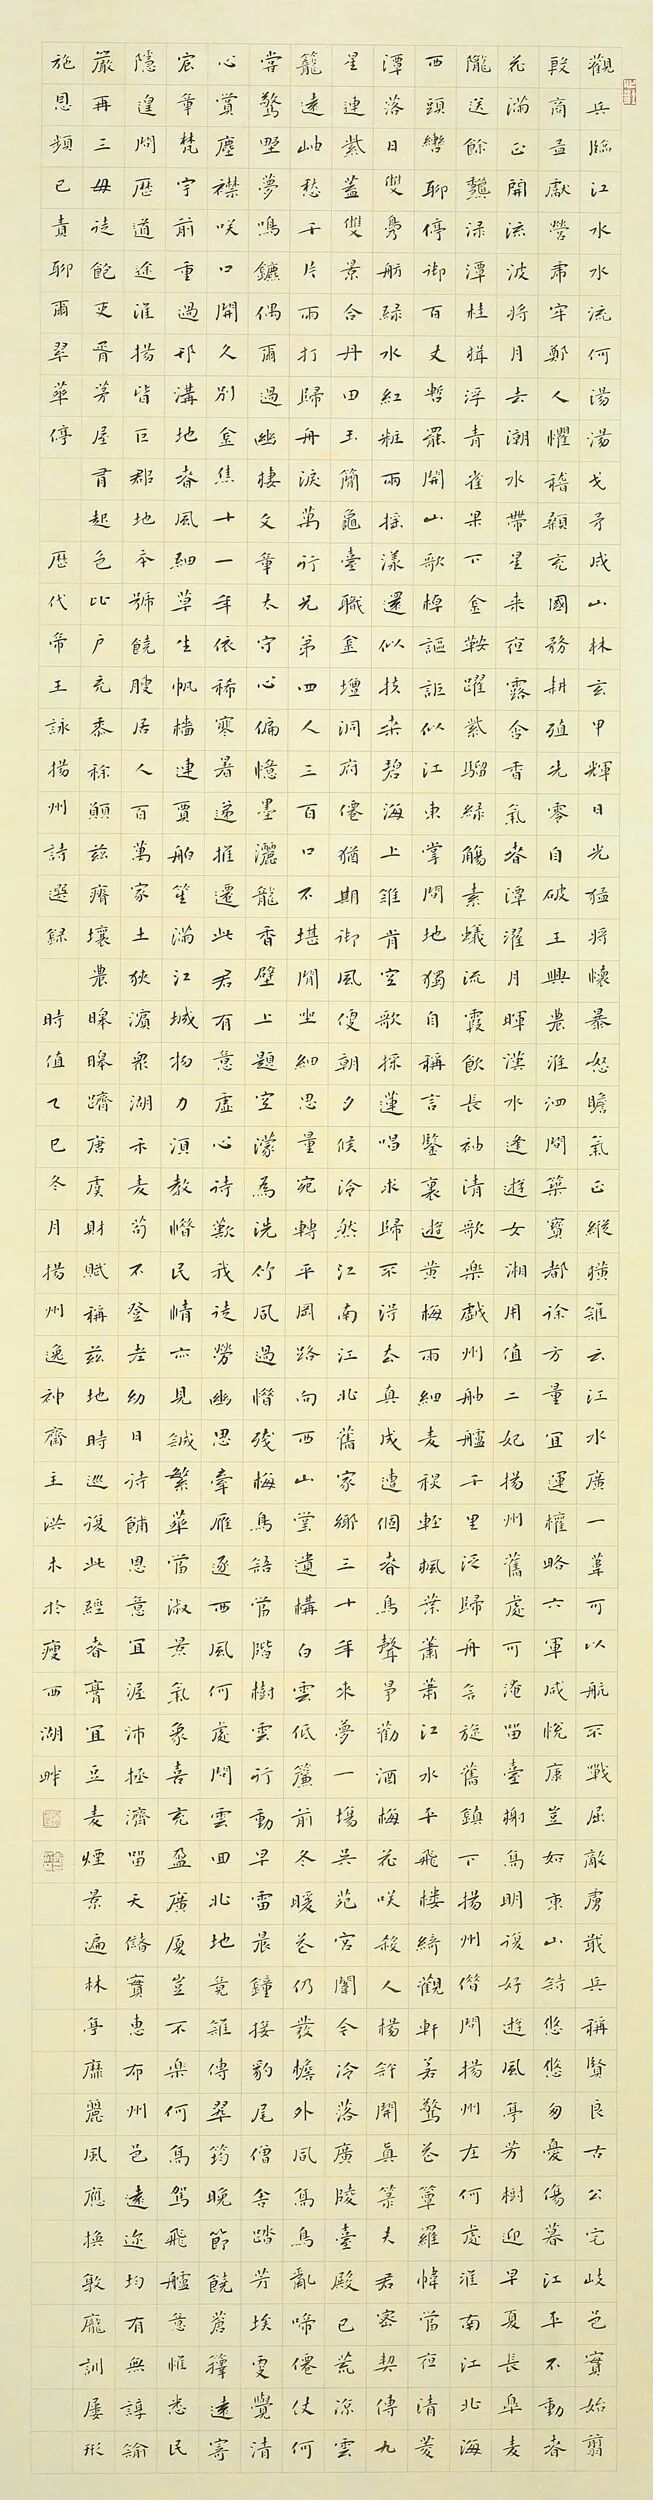 觀兵臨江水水流何湯湯戈矛成山林玄甲輝日光猛將懷暴怒膽氣正縱橫誰云江水廣一葦可以航不戰屈敵虜戢兵稱賢良古公宅岐邑實始翦
殷商孟獻營虎牢鄭人懼稽顙充國務耕殖先零自破王興農淮泗間築寶都徐方量宜運權略六軍咸悅康豈如東山詩悠悠多憂傷暮江平不動春
花滿正開流波將月去潮水帶星來夜露含香氣春潭濯月暉漢水逢遊女湘用值二妃揚州舊處可淹留臺榭高明復好遊風亭芳樹迎早夏長皋麥
隴送餘龔淥潭桂楫浮青雀果下金鞍躍紫騮綠觴素蟻流霞飲長袖清歌樂戲州舳艫千里泛歸舟言旋舊鎮下揚州借問揚州在何處淮南江北海
西頭轡聊停御百丈暫罷開山歌棹謳詎似江東掌間地獨自稱言鑒裏遊黃梅雨細麥秋輕楓葉蕭蕭江水平飛樓綺觀軒若驚花簟羅幃當夜清菱
潭落日雙鳧舫綠水紅粧兩搖漾還似扶桑碧海上誰肯空歌採蓮唱求歸不得去真成遭個春鳥聲爭勸酒梅花笑殺人楊許開真籙夫君密契傳九
星連紫蓋雙景合丹田玉簡龜臺職金壇洞府僊猶期御風便朝夕候泠然江南江北舊家鄉三十年來夢一場吳苑宮闈今冷落廣陵臺殿已荒涼雲
籠遠岫愁千片雨打歸舟淚萬行兄弟四人三百口不堪閒坐細思量宛轉平岡路向西山堂遺構白雲低簾前冬暖花仍發檐外風高鳥亂啼僊仗何
嘗驚野夢鳴鑣偶爾過幽棲文章太守心偏憶墨灑龍香壁上題空濛為洗竹風過惜殘梅鳥語當階樹雲行動早雷晨鐘接豹尾僧舍踏芳埃更覺清
心賞塵襟笑口開久別金焦十一年依稀寒暑遞推遷此君有意虛心詩歎我徒勞幽思牽雁逐西風何處問雲回北地竟誰傳翠筠晚節饒蒼籜遠寄
宸章梵宇前重過邗溝地春風細草生帆檣連賈舶笙滿江城物力須教惜民情亦見誠繁華當淑景氣象喜充盈廣廈豈不樂何為駕飛艫意惟悉民
隱遑問歷道途淮揚皆巨郡地本號饒膄居人百萬家土狹瀕眾湖禾麥苟不登老幼日待餔恩意宜渥沛拯濟留天儲實惠布州邑遠邇均有無諄諭
嚴再三毋徒飽吏胥茅屋育起色比戶充黍稌顧茲瘠壤農皞皞躋唐虞財賦稱茲地時巡復此經春膏宜豆麥煙景遍林亭靡麗風應換敦龐訓屢形
施恩頻已責聊爾翠華停 歷代帝王詠揚州詩選錄 時值乙巳冬月揚州逸神齋主洪木於瘦西湖畔